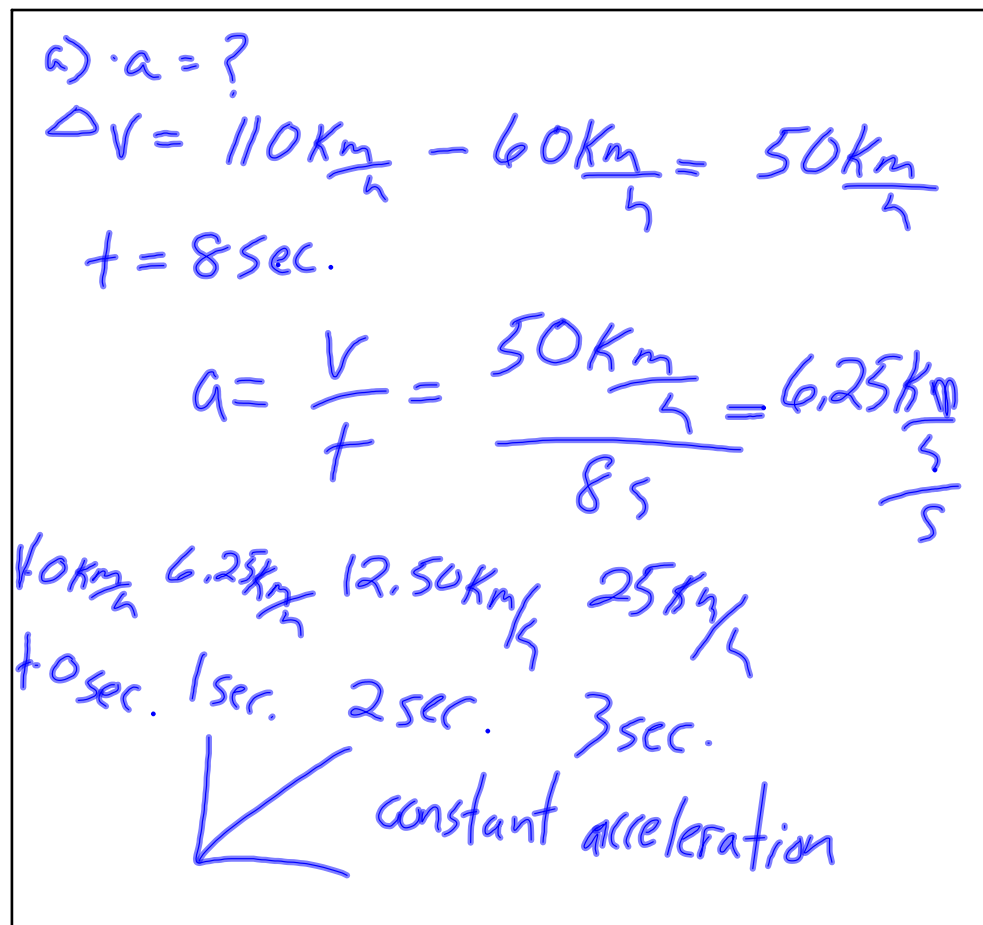 a) · a = ?
ΔV = 110 Km/h - 60 Km/h = 50 Km/h
t = 8 sec.
a = V/t = 50 Km/h / 8 s = 6.25 Km/h/s
V 0 Km/h 6.25 Km/h 12.50 Km/h 25 Km/h
t 0 sec. 1 sec. 2 sec. 3 sec.
constant acceleration